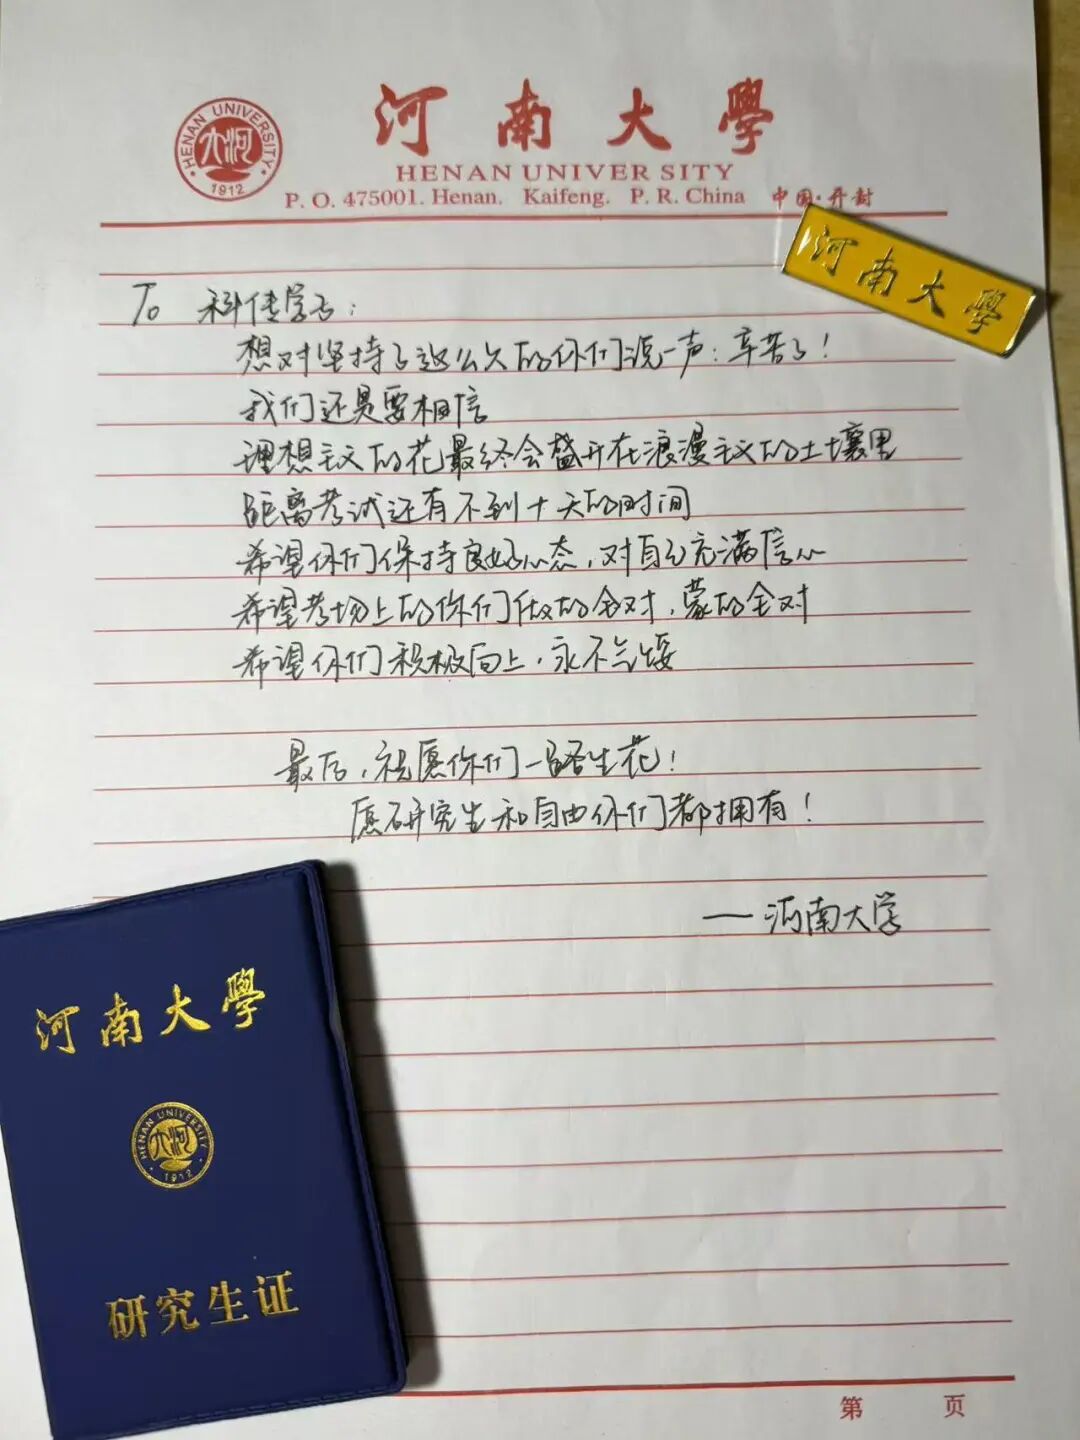 河南大學
HENAN UNIVERSITY
P. O. 475001. Henan. Kaifeng. P. R. China 中国·开封
HENAN UNIVERSITY
1912
河南大學
To 科传学子：
想对坚持了这么久的你们说一声：辛苦了！
我们还是要相信
理想主义的花最终会盛开在浪漫主义的土壤里
距离考试还有不到十天的时间
希望你们保持良好心态，对自己充满信心
希望考场上的你们做的全对，蒙的全对
希望你们积极向上，永不言
最后，祝愿你们一路生花！
愿研究生和自由你们都拥有！
——河南大学
河南大學
HENAN UNIVERSITY
1912
研究生证
第 页